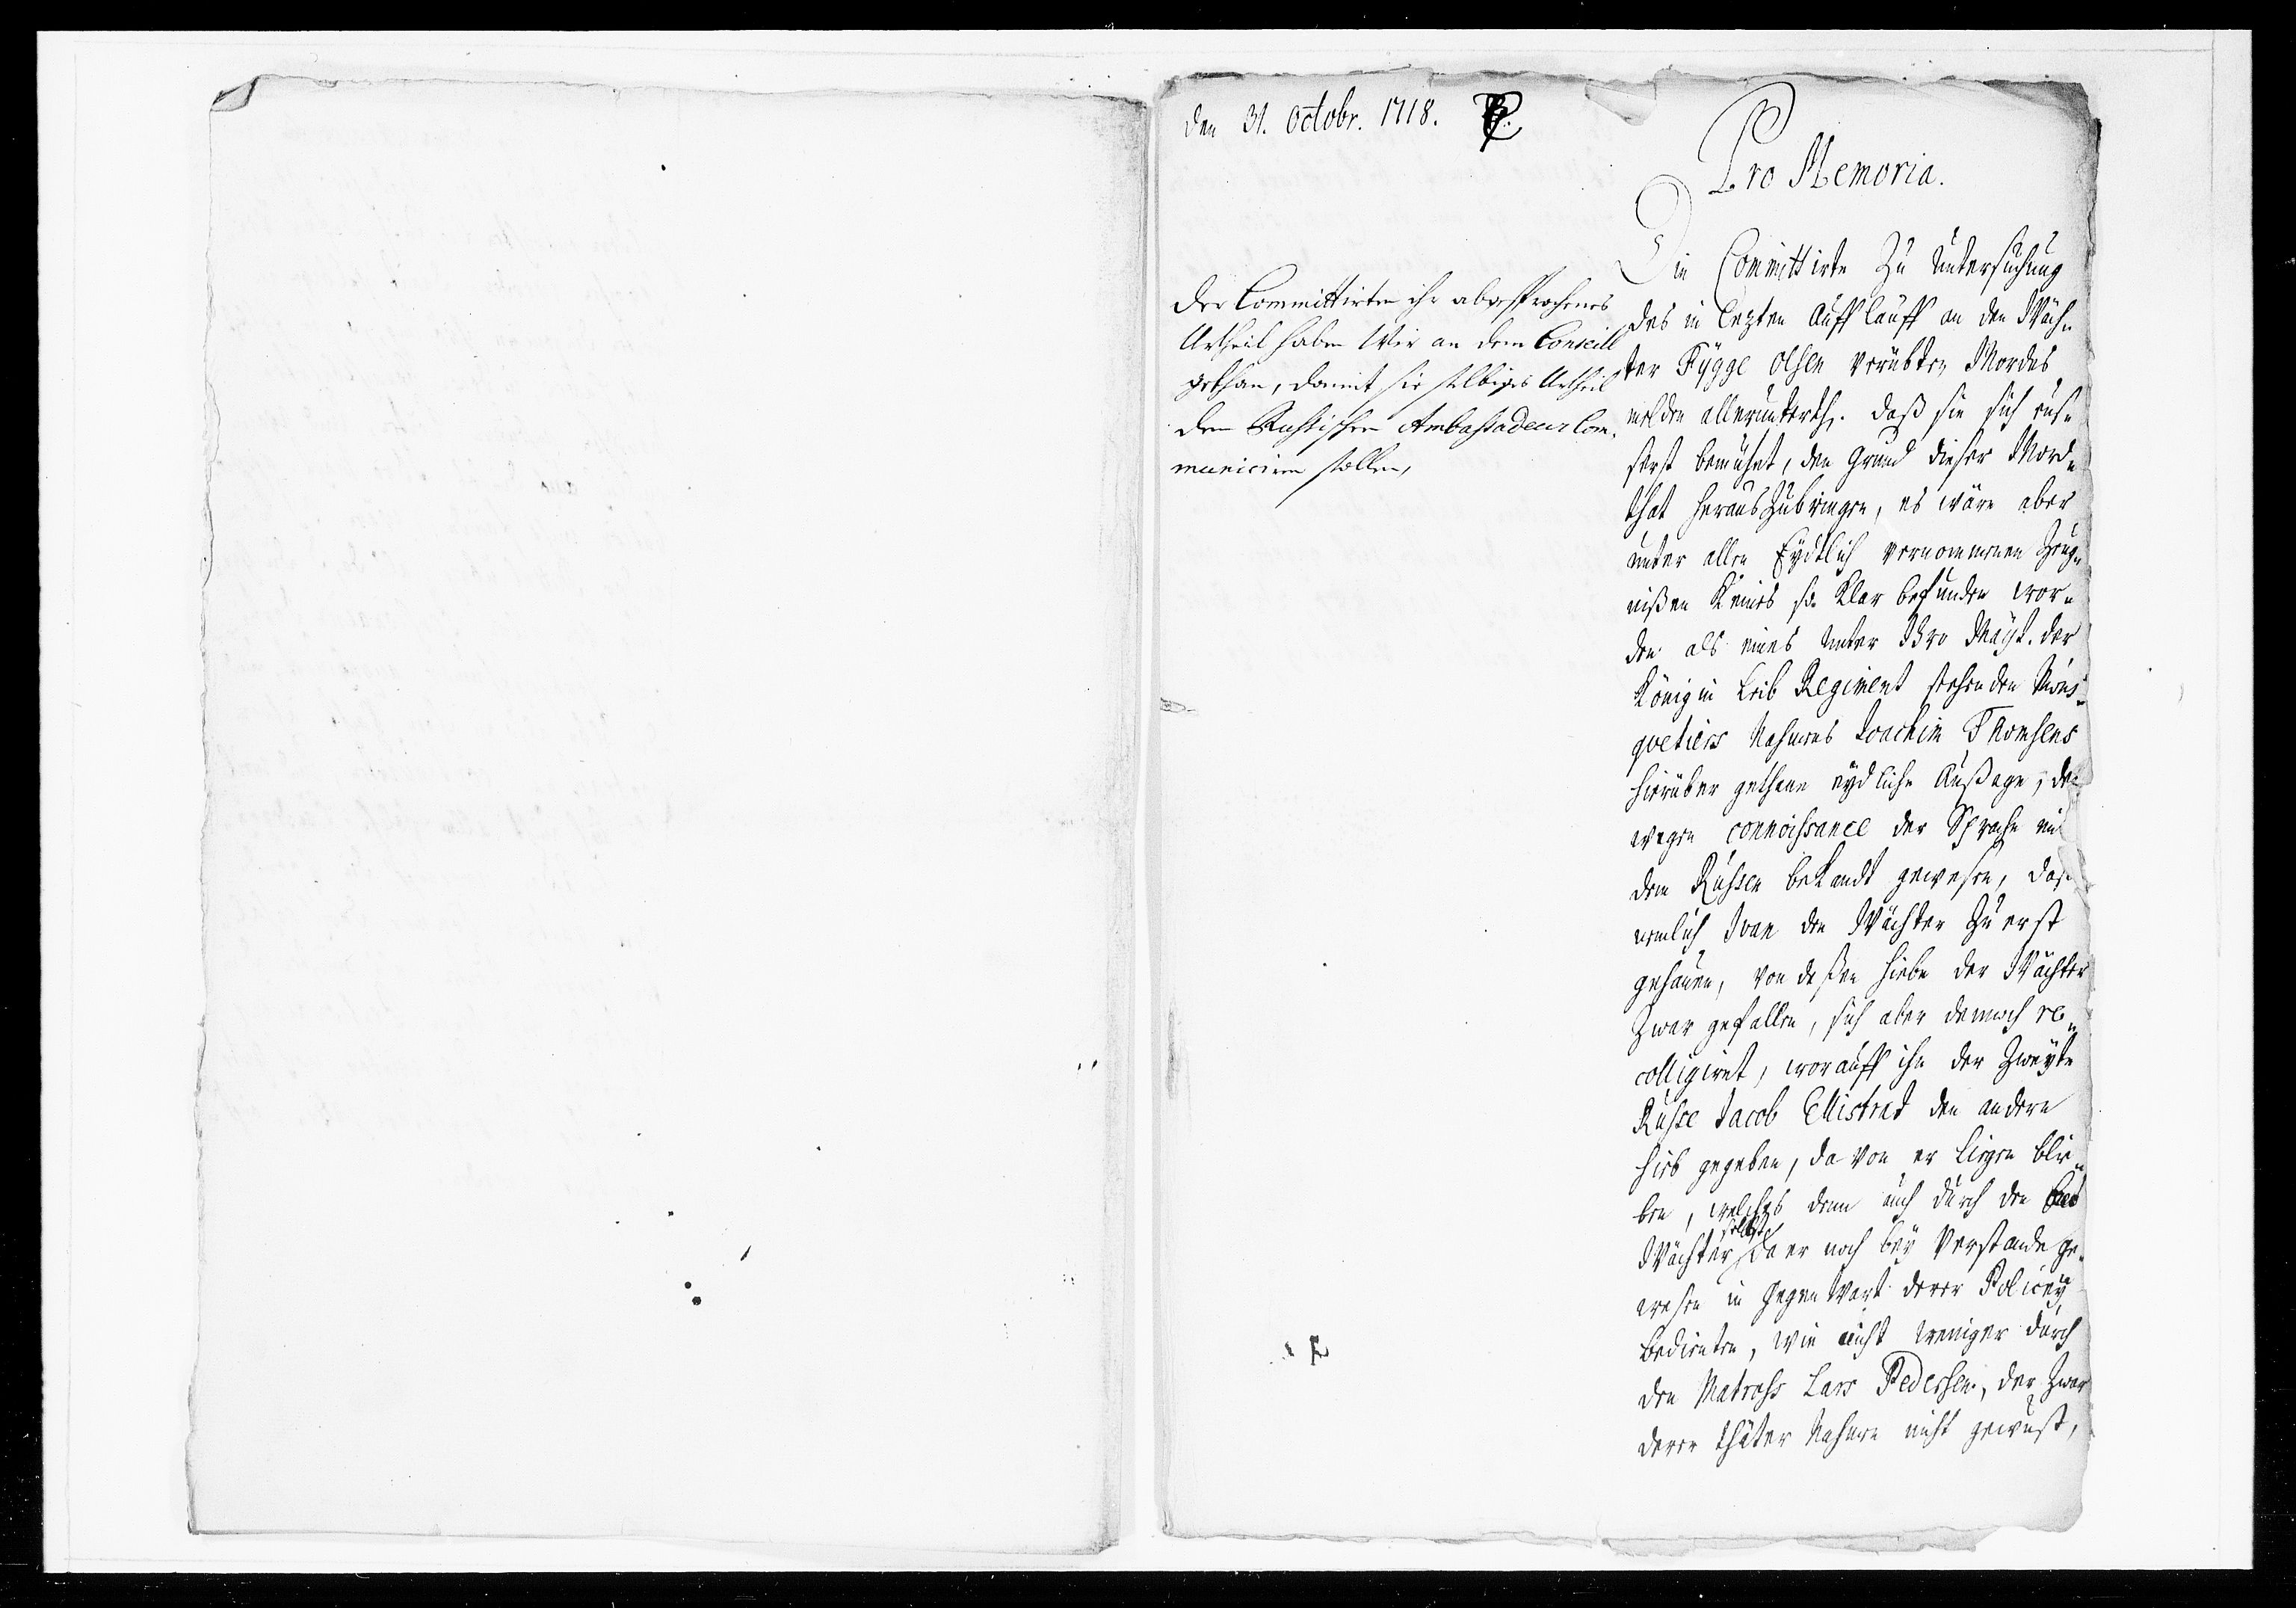 den 31. Octobr. 1718.
Der Committirten ihr abgesprochenes
Urtheil haben Wir an dem Conseill
gethan, damit sie selbiges Urtheil
dem Russischen Ambassadeur Com-
municiren sollen,
Pro Memoria.
Die Committirte Zu Untersuchung
des in lezten Aufflauff an den Wäch-
ter Tygge Olsen verübten Mordes
melden allerunterth. daß sie sich eus-
serst bemühet, den Grund dieser Mord-
that heraus Zubringen, es wäre aber
unter allen Eydtlich vernommenen Zeug-
nißen Keines so klar befunden wor-
den als eines unter Ihro Mayt. der
Königin Leib Regiment stehenden Mous-
quetiers Nahmens Joachim Thomsens
hierüber gethane eydliche Außage, de
wegen connoissance der Sprache mi
dem Russen bekandt gewesen, daß
nemlich Ivan den Wächter Zu erst
gehauen, von deßen Hiebe der Wächter
Zwar gefallen, sich aber dennoch re-
colligiret, worauff ihn der Zweyte
Russe Jacob Ellistrat den andern
Hieb gegeben, da von er liegen blie-
ben, welches denn auch durch den
Wächter selbst da er noch bey Verstande ge-
wesen in Gegenwart derer Policey
bedienten, wie nicht weniger durch
den Matross Lars Pedersen, der Zwar
derer thäter Nahmen nicht gewust,